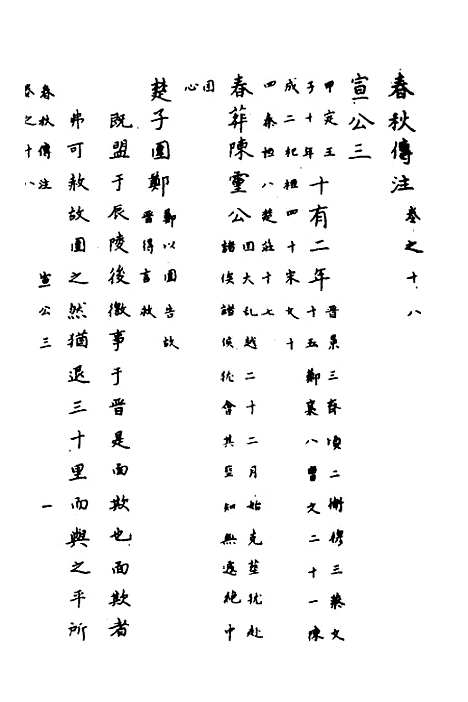 春秋傳注 卷之十八
宣公三
甲定王
子十年
十有二年
晉景三齊頃二衛穆三蔡文
十五鄭襄八曹文二十一陳
成二杞桓四十宋文十
四秦桓八楚莊十七
春葬陳靈公
國大亂越二十二月始克葬猶赴
諸侯諸侯猶會其葬知無遽絕中
國
心
楚子圍鄭
鄭以圍告故
得言
既盟于辰陵後徼事于晉是面欺也面欺者
弗可赦故圍之然猶退三十里而與之平所
春秋傳注 宣公三 一
卷之十八